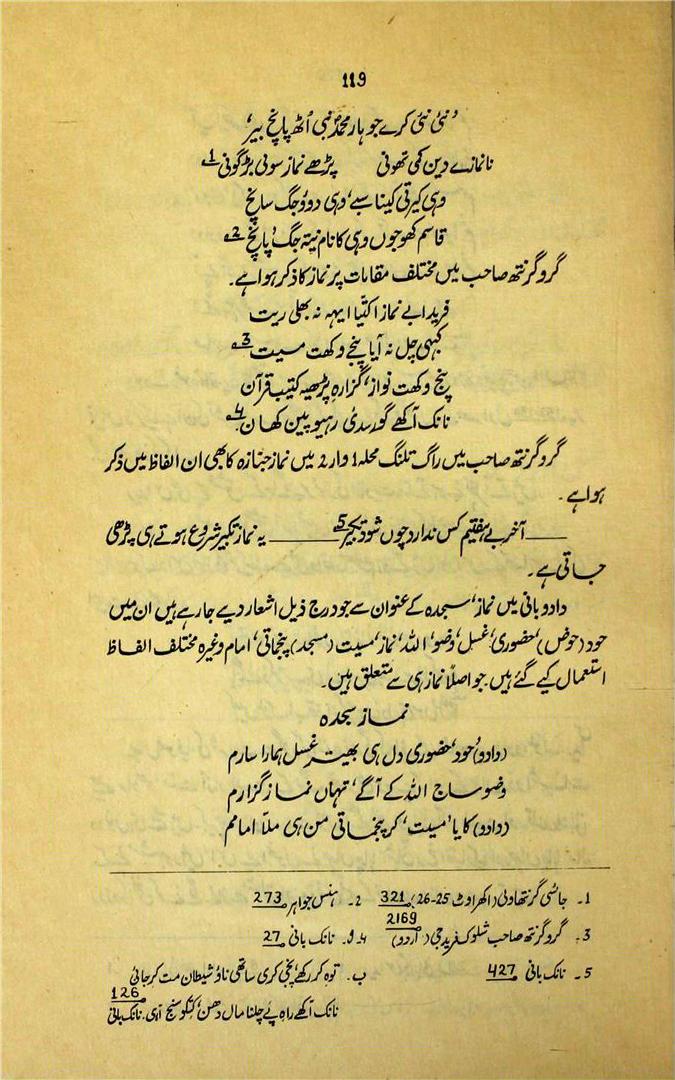 119
'نئی نئی کرے جوہار محمدؐ نبی اُٹھ پانچ بیر'
نا نمازے دین کی تھونی پڑھے نماز سوئی بڑ گونی 1
وہی کیرتی کینا سبے' وہی دوؤ جگ سانچ
قاسم کھوجوں وہی کا نام نیتہ جگ' پانچ 2
گرو گرنتھ صاحب میں مختلف مقامات پر نماز کا ذکر ہوا ہے۔
فریدا بے نمازا کتّیا ایہہ نہ بھلی ریت
کبہی چل نہ آیا پنجے وکھت مسیت 3
پنج وکھت نواز' گزارہ پڑھیہ کتیب قرآن
نانک آکھے گور سدئی رہیو پین کھان 4
گرو گرنتھ صاحب میں راگ تلنگ محلہ 1 وار 2 میں نماز جنازہ کا بھی ان الفاظ میں ذکر
ہوا ہے۔
—— آخر بے ہفتیم کس ندارد چوں شود تکبیر 5 —— یہ نماز تکبیر شروع ہوتے ہی پڑھی
جاتی ہے۔
دادو بانی میں نماز' سجدہ کے عنوان سے جو درج ذیل اشعار دیے جا رہے ہیں ان میں
حود (حوض)' حضوری' غسل' وضو' اللہ' نماز' مسیت (مسجد) پنجماتی' امام وغیرہ مختلف الفاظ
استعمال کیے گئے ہیں۔ جو اصلاً نماز ہی سے متعلق ہیں۔
نماز سجدہ
(دادو) حود' حضوری دل ہی بھیتر غسل ہمارا سارم
وضو ساج اللہ کے آگے' تہاں نماز گزارم
(دادو) کایا 'مسیت' کر پنجماتی من ہی ملّا امامم
1۔ جائسی گرنتھاولی (اکھراوٹ 25-26)، 321 2۔ ہنس جواہر 273
3۔ گرو گرنتھ صاحب شلوک فرید جی (اردو) 2169 4۔ و۔ نانک بانی 27
5۔ نانک بانی 427 ب۔ توہ کر رکھے پنجی کری ساتھی ناؤ شیطان مت کر جائی
نانک آکھے راہ پے چلنا مال دھن' کتکو سنج آہی۔ نانک بانی 126